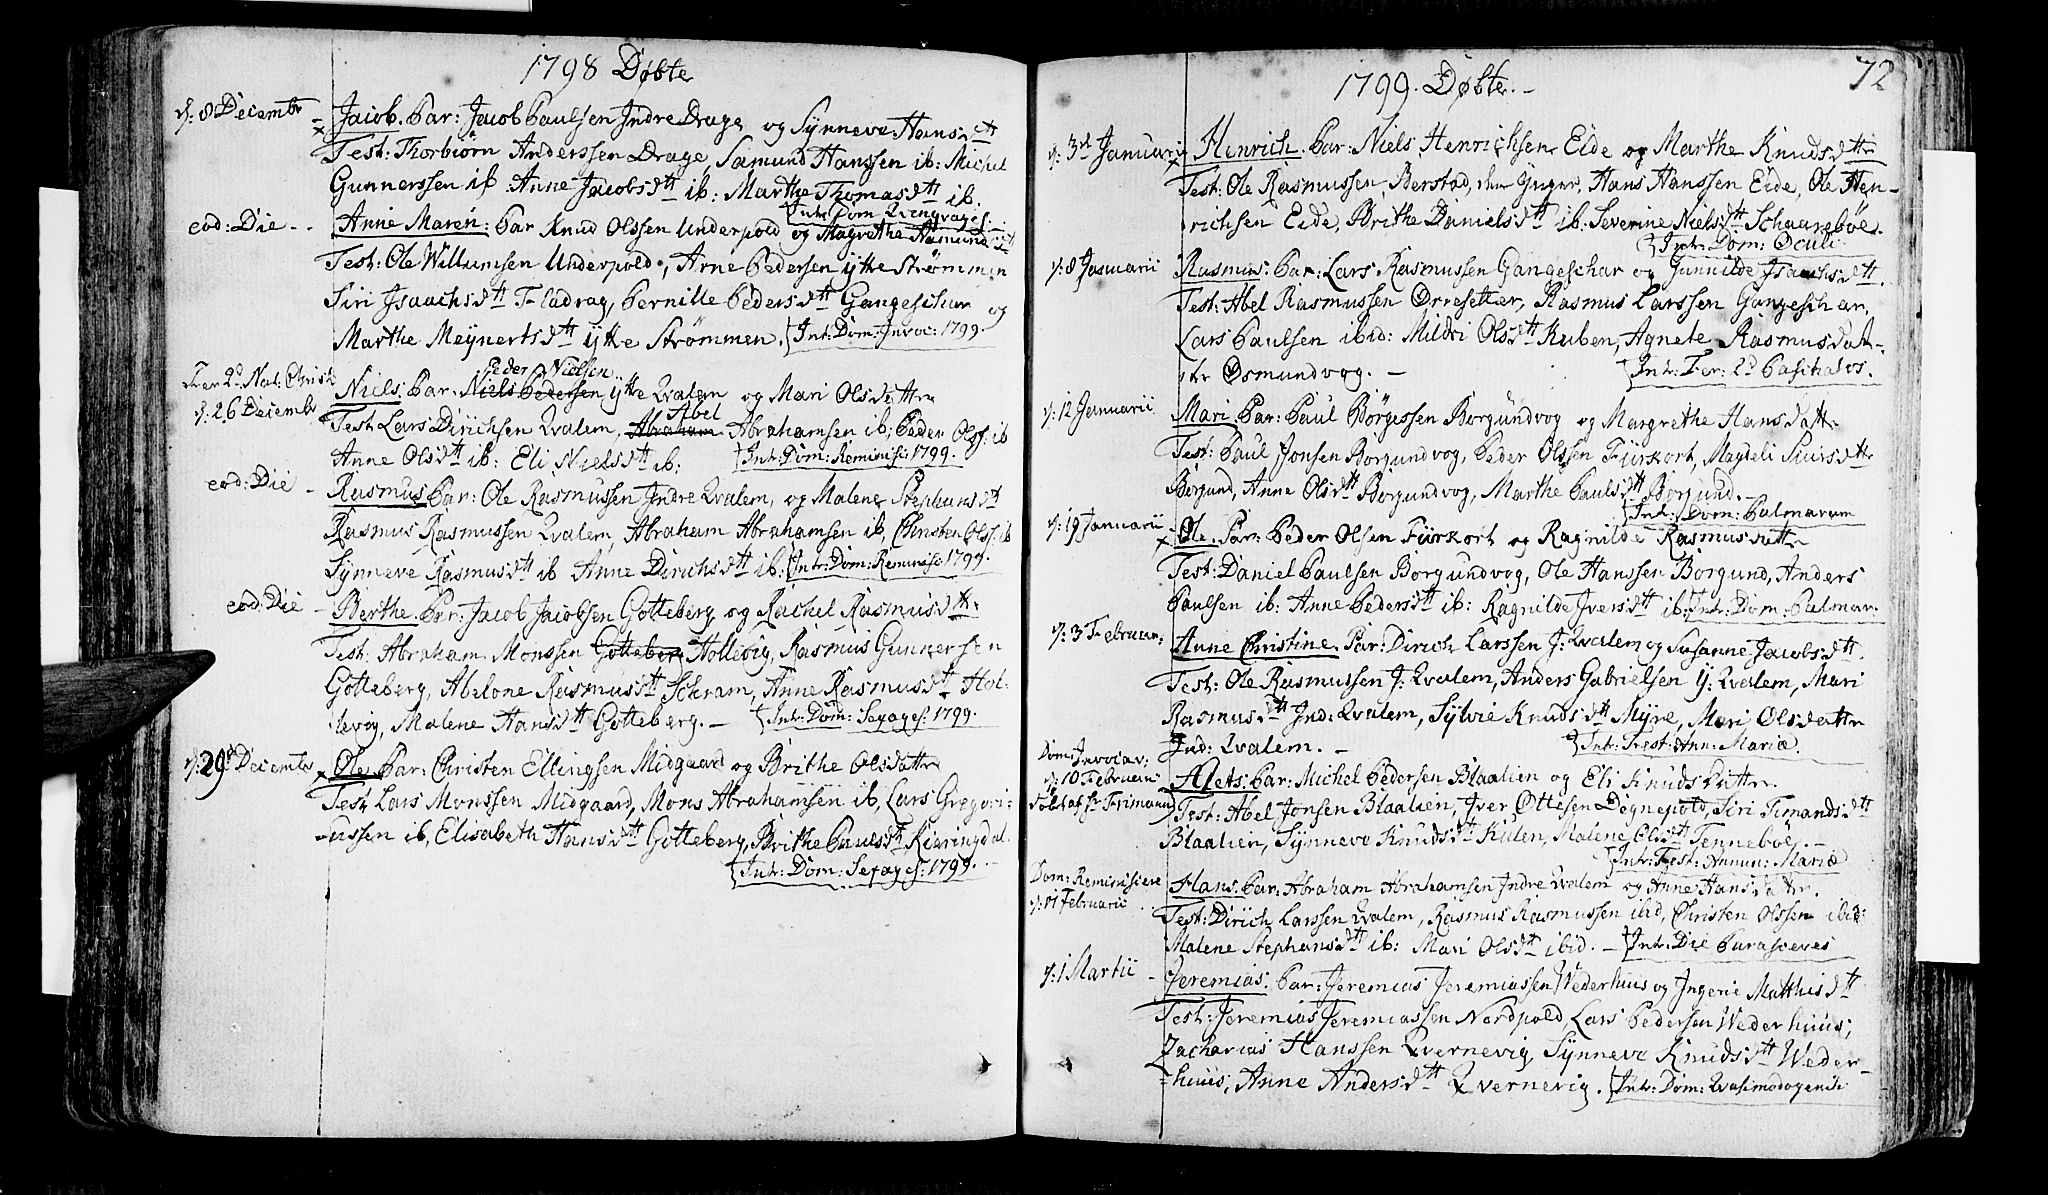 1798 Døbte
d: 8 Decembr
Jacob. Par: Jacob Paulsen Indre Drage og Synneve Hansdtt
Test: Thorbiörn Anderssen Drage, Samund Hanssen ib: Michel
Gunnerssen ib: Anne Jacobsdtt ib: Marthe Thomasdtt ib.
Intr: Dom: Qvinqvages:
eod: Die - -
Anne Maren: Par Knud Olssen Underpold og Magrethe Aamunds
Test: Ole Willumsen Underpold, Arne Pedersen ytte Strømmen
Siri Isaachsdtt Fladrag, Pernille Pedersdtt Gangeschar og
Marthe Meynertsdtt ytte Strømmen. Intr: Dom: Invoc: 1799.
Fer 2d Nat: Christi
d: 26 Decembr
Peder Nielsen
Niels. Par: Niels Pedersen ytte Qvalem og Mari Olsdattr
Abel
Test Lars Dirichsen Qvalem, Abraham Abrahamsen ib; Peder Olss: ib
Anne Olsdtt ib: Eli Nielsdtt ib: Intr: Dom: Reminisc: 1799.
eod: Die -
Rasmus Par: Ole Rasmussen Indre Qvalem, og Malene Stephansdtt
Rasmus Rasmussen Qvalem, Abraham Abrahamsen ib, Christen Olss: ib
Synneve Rasmusdtt ib Anne Dirichsdtt ib: Intr: Dom: Reminisc: 1799.
eod: Die -
Berthe. Par: Jacob Jacobsen Gotteberg og Rachel Rasmusdtr
Test: Abraham Monssen Gotteberg Hollevig, Rasmus Gunnersen
Gotteberg, Abelone Rasmusdtt Schram, Anne Rasmusdtt Hol-
levog, Malene Hansdtt Gotteberg. - Intr: Dom: Sexages: 1799.
d: 29d Decembr
Ole Par: Christen Ellingsen Midgaard og Brithe Olsdattr
Test Lars Monssen Midgaard, Mons Abrahamsen ib, Lars Gregori-
-ussen ib, Elisabeth Hansdtt Gotteberg, Brithe Paulsdtt Kieringdal.
Intr: Dom: Sexages: 1799.
1799. Døbte. -
72
d: 3d Januarii
Henrich. Par: Niels Henrichsen Eide og Marthe Knudsdttr
Test: Ole Rasmussen Berstad, den Yngre, Hans Hanssen Eide, Ole Hen-
richsen Eide, Brithe Danielsdtt ib. Severine Nielsdtt Schaarebøe.
Intr: Dom: Oculi
d: 8 Januarii
Rasmus: Par: Lars Rasmussen Gangeschar og Gunnilde Isaachsdtt.
Test: Abel Rasmussen Orresetter, Rasmus Larssen Gangeschar,
Lars Paulsen ibid: Mildri Olsdtt Kuben, Agnete Rasmusdat-
ter Osmundvog. - Intr: Fer: 2d Paschatos.
d: 12 Januarii
Mari. Par: Paul Börgessen Borgundvog og Margrethe Hansdattr
Test: Paul Jonsen Borgundvog, Peder Olssen Fürkort, Magdeli Siursdttr
Borgund, Anne Olsdtt Borgundvog, Marthe Paulsdtt Borgund. -
Intr: Dom: Palmarum
d: 19 Januarii
Ole. Par: Peder Olsen Fürkort og Ragnilde Rasmusdattr
Test: Daniel Paulsen Borgundvog, Ole Hanssen Borgund, Anders
Paulsen ib: Anne Pedersdtt ib: Ragnilde Iversdtt ib. Intr: Dom: Palmar.
d: 3 Februar:
Anne Christine. Par: Dirich Larssen J: Qvalem og Susanne Jacobsdtt.
Test: Ole Rasmussen J: Qvalem, Anders Gabrielsen y: Qvalem, Mari
Rasmusdtt Ind: Qvalem, Sylvie Knudsdtt Myre, Mari Olsdattr
Ind: Qvalem. - Intr: Fest: Ann: Mariæ.
Dom: Invocav:
d: 10 Februarii
Døbt af Hr Frimann
Alets: Par: Michel Pedersen Blaalien og Eli Knudsdattr.
Test: Abel Jonsen Blaalien, Iver Ottesen Degnepold, Siri Timandsdtt
Blaalien, Synneve Knudsdtt Kulen, Malene Olsdtt Tennebøe. -
Intr: Fest: Annun: Mariæ
Dom: Reminisiere
d: 17 Februarii
Hans. Par: Abraham Abrahamsen Indre Qvalem og Anne Hansdattr.
Test: Dirich Larssen Qvalem, Rasmus Rasmussen ibid, Christen Olssen ibid:
Malene Stephansdtt ib: Mari Olsdtt ibid. - Intr: Die Parasceves
d: 1 Martii -
Jeremias. Par: Jeremias Jeremiassen Wederhuus og Ingerie Matthisdtt
Test: Jeremias Jeremiassen Nordpold, Lars Pedersen Wederhuus,
Zacharias Hanssen Qvernevig, Synneve Knudsdtt Weder-
-huus, Anne Andersdtt Qvernevig. Intr: Dom: Qvasimodogeniti